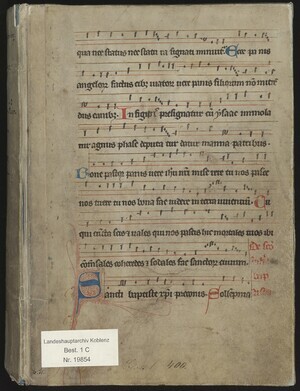 qua nec status nec statu ra signati minuit². Ecce pa nis
angelor factus cib² viator² vere panis filiorum nō mitte
dus canib². In figur presignatur cū ysaac immola
tur agnus phase deputa tur datur manna patri bus.
Bone pastor panis vere ihu nr̄i mise rere tu nos pasce
nos tuere tu nos bona fac videre in terra viventiū. Tu
qui cūcta scis et vales qui nos pascis hic mortales tuos ibi
cōmensales coheredes et sodales fac sanctor civium.
Sancti
Sollempnia
Landeshauptarchiv Koblenz
Best. 1 C
Nr. 19854